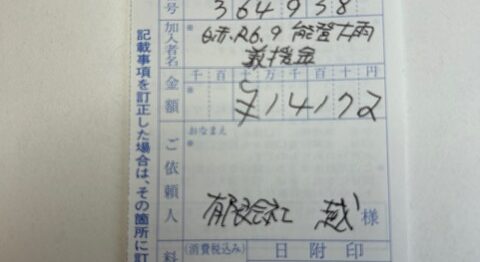 号 364938
加入者名 日赤.R6.9 能登大雨
義援金
金額 千百十万千百十円
¥14172
おなまえ
ご依頼人
有限会社 越 様
料 (消費税込み) 日附印
記載事項を訂正した場合は、その箇所に訂